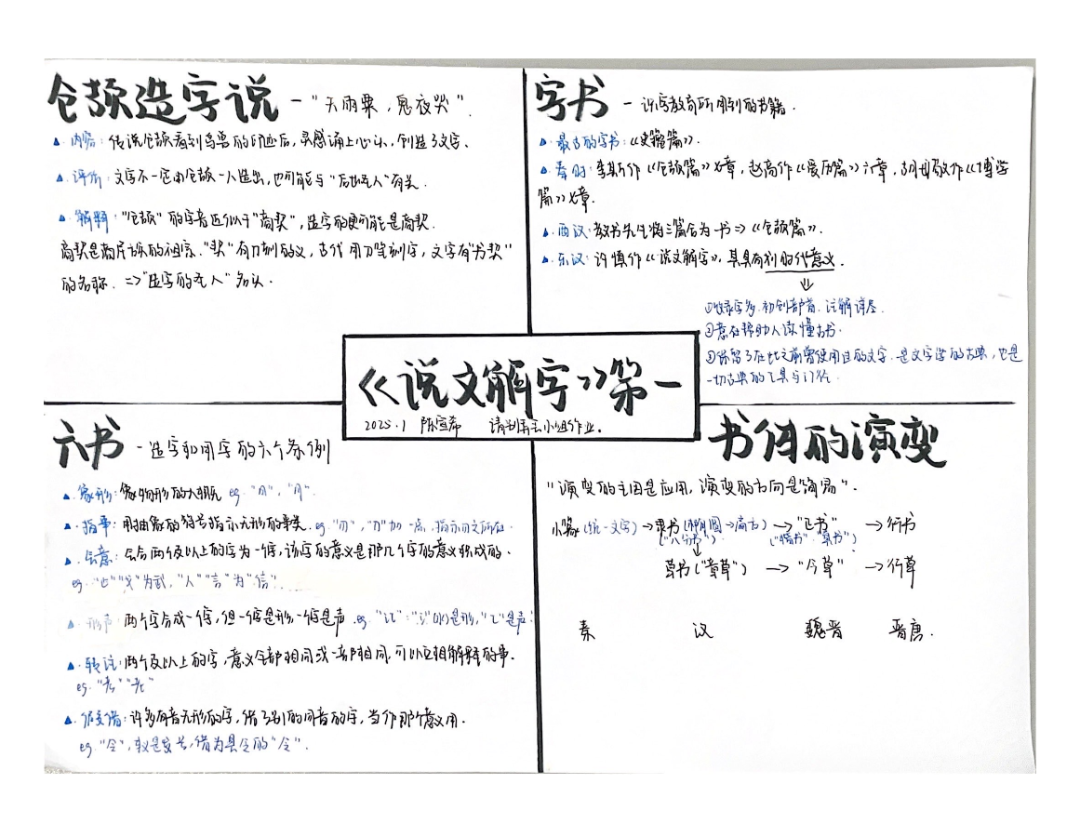 仓颉造字说 - "天雨粟，鬼夜哭"
▲ 内容：传说仓颉看到鸟兽的印迹后，灵感涌上心头，创造了文字、
▲ 评价：文字不一定由仓颉一人造出，也可能与"后世圣人"有关.
▲ 解释："仓颉"的字音近似于"商契"，造字的便可能是商契.
商契是商片族的祖宗."契"有刀刻的义，古代用刀笔刻字，文字有"书契"
的名称. => "造字的圣人"名头.
字书 - 识字教育所用到的书籍.
▲ 最古的字书：《史籀篇》.
▲ 秦时：李斯作《仓颉篇》七章，赵高作《爰历篇》六章，胡毋敬作《博学
篇》七章.
▲ 西汉：教书先生将三篇合为一书⇒《仓颉篇》.
▲ 东汉：许慎作《说文解字》，其具有划时代意义.
①收录字多，初创部首，注解详尽.
②意在帮助人读懂古书.
③保留了在此之前曾使用过的文字，是文字学的古典，也是
一切古典的工具与门径.
《说文解字》第一
2025.1 陈宣希
六书 - 造字和用字的六个条例
▲ 象形：象物形的大概 eg. "日"，"月".
▲ 指事：用抽象的符号指示无形的事类.
▲ 会意：会合两个及以上的字为一个字，该字的意义是那几个字的意义积成的、
eg. "止""戈"为武，"人""言"为"信".
▲ 形声：两个字合成一个字，但一个字是形，一个字是声.
▲ 转注：两个及以上的字，意义全部相同或一部相同，可以互相解释的事.
eg. "考""老"
▲ 假借：许多有音无形的字，借了别的同音的字，当作那个意义用.
eg "令"，本义是发号，借为县令的"令".
书体的演变
"演变的主因是应用，演变的方向是简易".
小篆(统一文字) → 隶书(椭圆→扁方) → "正书" → 行书
("八分书") ("楷书"、"真书")
草书("章草") → "今草" → 行草
秦 汉 魏晋 晋唐.